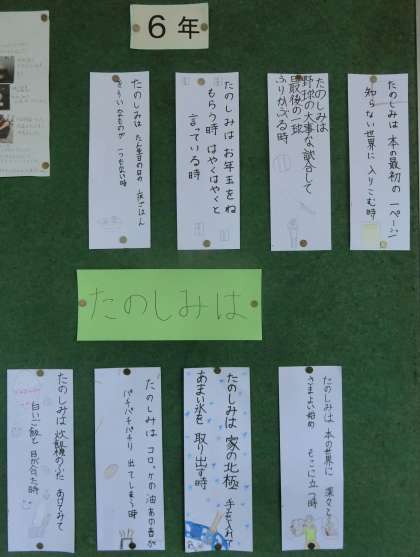 6年
たのしみは 本の最初の 一ページ
知らない世界に 入りこむ時
たのしみは
野球の大事な試合して
最後の一球
ふりかぶる時
たのしみは お年玉をね
もらう時 はやくはやくと
言っている時
たのしみは たん生日の日の 夜ごはん
きらいなものが 一つもない時
たのしみは
たのしみは 本の世界に 深々と
さまよい始め そこに立つ時
たのしみは 家の北極 手を入れて
あまい氷を 取り出す時
たのしみは コロッケの油 あの音が
パチパチパチリ 出てしまう時
たのしみは 炊飯機のふた あけてみて
白いご飯と 目が合た時